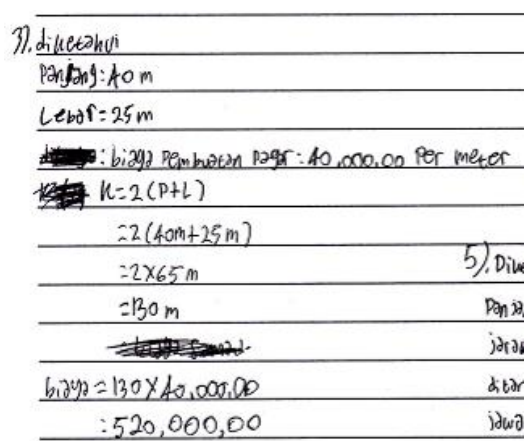 3). diketahui
Panjang: 40 m
Lebar = 25 m
: biaya Pembuatan Pagar : 40.000,00 Per meter
K = 2 (P+L)
= 2 (40m+25m)
= 2x65 m
= 130 m
biaya = 130 x 40.000,00
: 520,000,00
5). Dike
Panja
jara
ditan
jawa